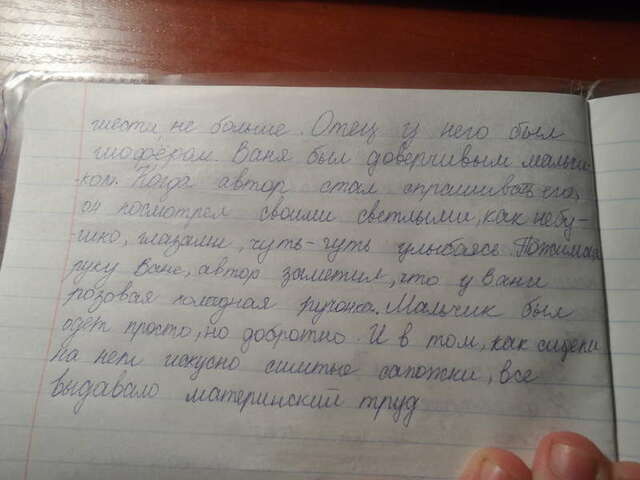 шести, не больше. Отец у него был
шофёром. Ваня был доверчивым мальчи-
ком. Когда автор стал спрашивать его,
он посмотрел своими светлыми, как небу-
шко, глазами, чуть-чуть улыбаясь. Пожимая
руку Ване, автор заметил, что у Вани
розовая холодная ручонка. Мальчик был
одет просто, но добротно. И в том, как сидели
на нем искусно сшитые сапожки, все
выдавало материнский труд